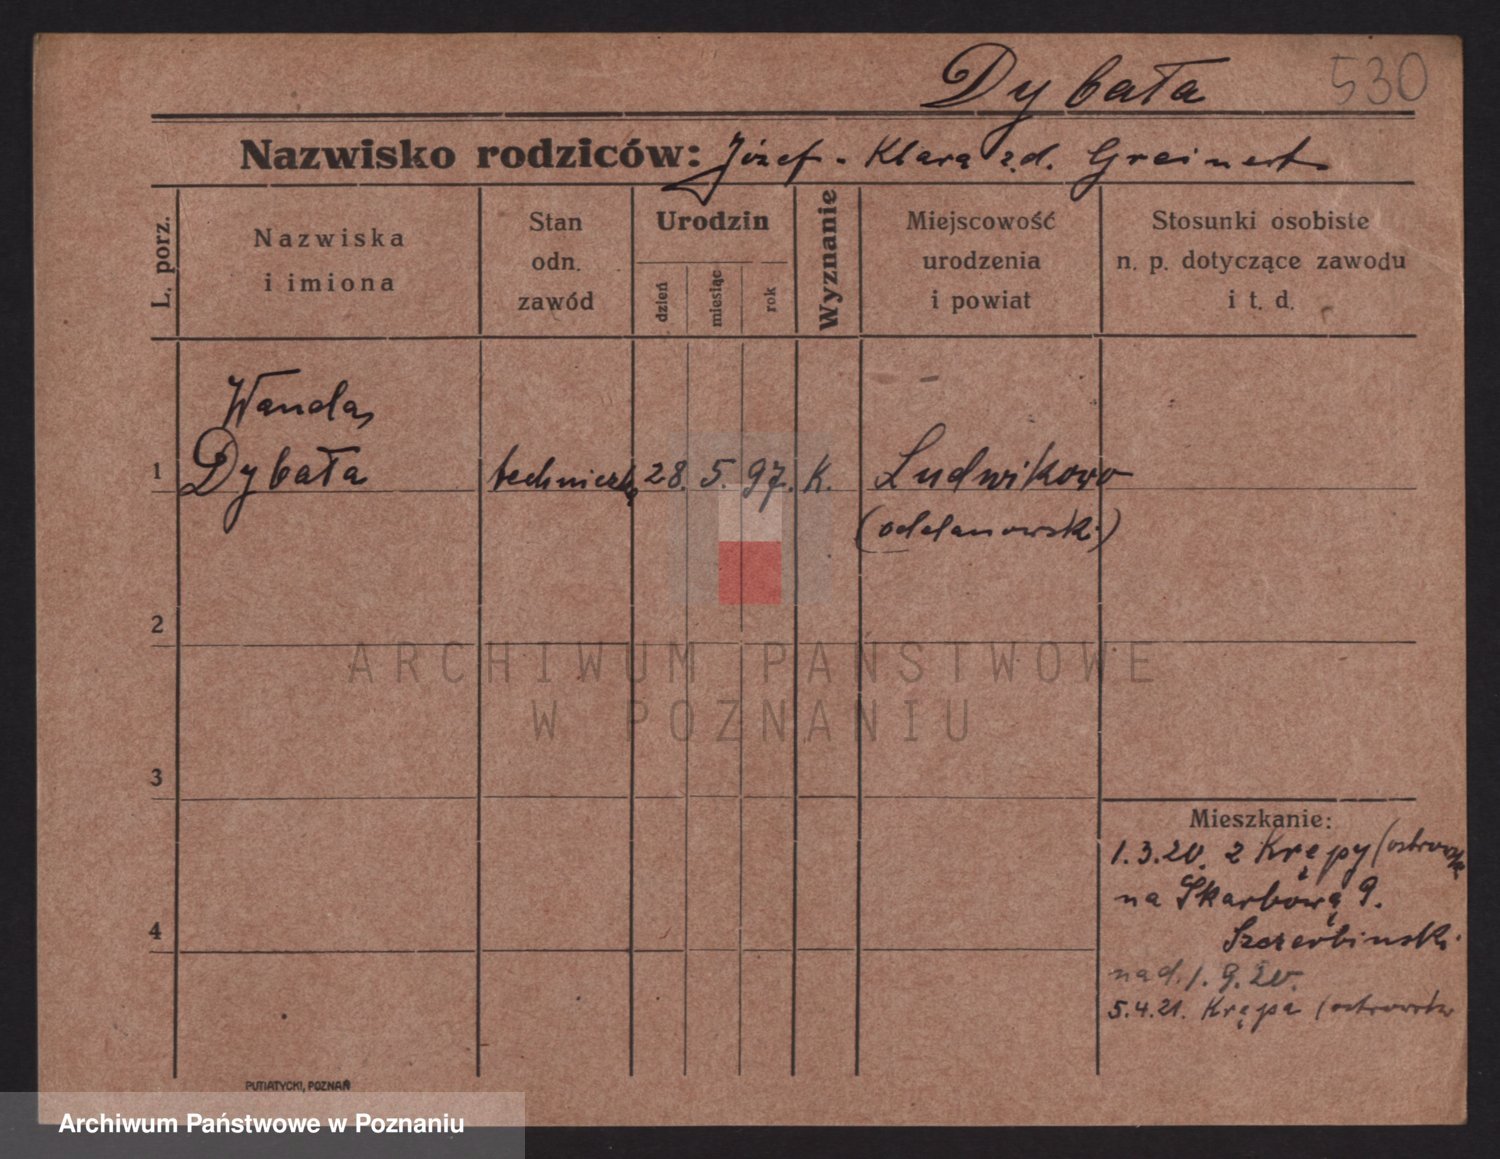 Dybała 530
Nazwisko rodziców: Józef - Klara z.d. Greinert
L. porz.
Nazwiska
i imiona
Stan
odn.
zawód
Urodzin
dzień
miesiąc
rok
Wyznanie
Miejscowość
urodzenia
i powiat
Stosunki osobiste
n. p. dotyczące zawodu
i t. d.
Wanda
1 Dybała techniczka 28. 5. 97. K. Ludwikowo
(odolanowski)
2
ARCHIWUM PAŃSTWOWE
W POZNANIU
3
Mieszkanie:
1.3.20. z Krępy (ostrowsk
na Skarbową 9.
4
Szczerbinski.
nad. 1.9.20.
5.4.21. Krępa (ostrowski
PUTIATYCKI, POZNAŃ
Archiwum Państwowe w Poznaniu